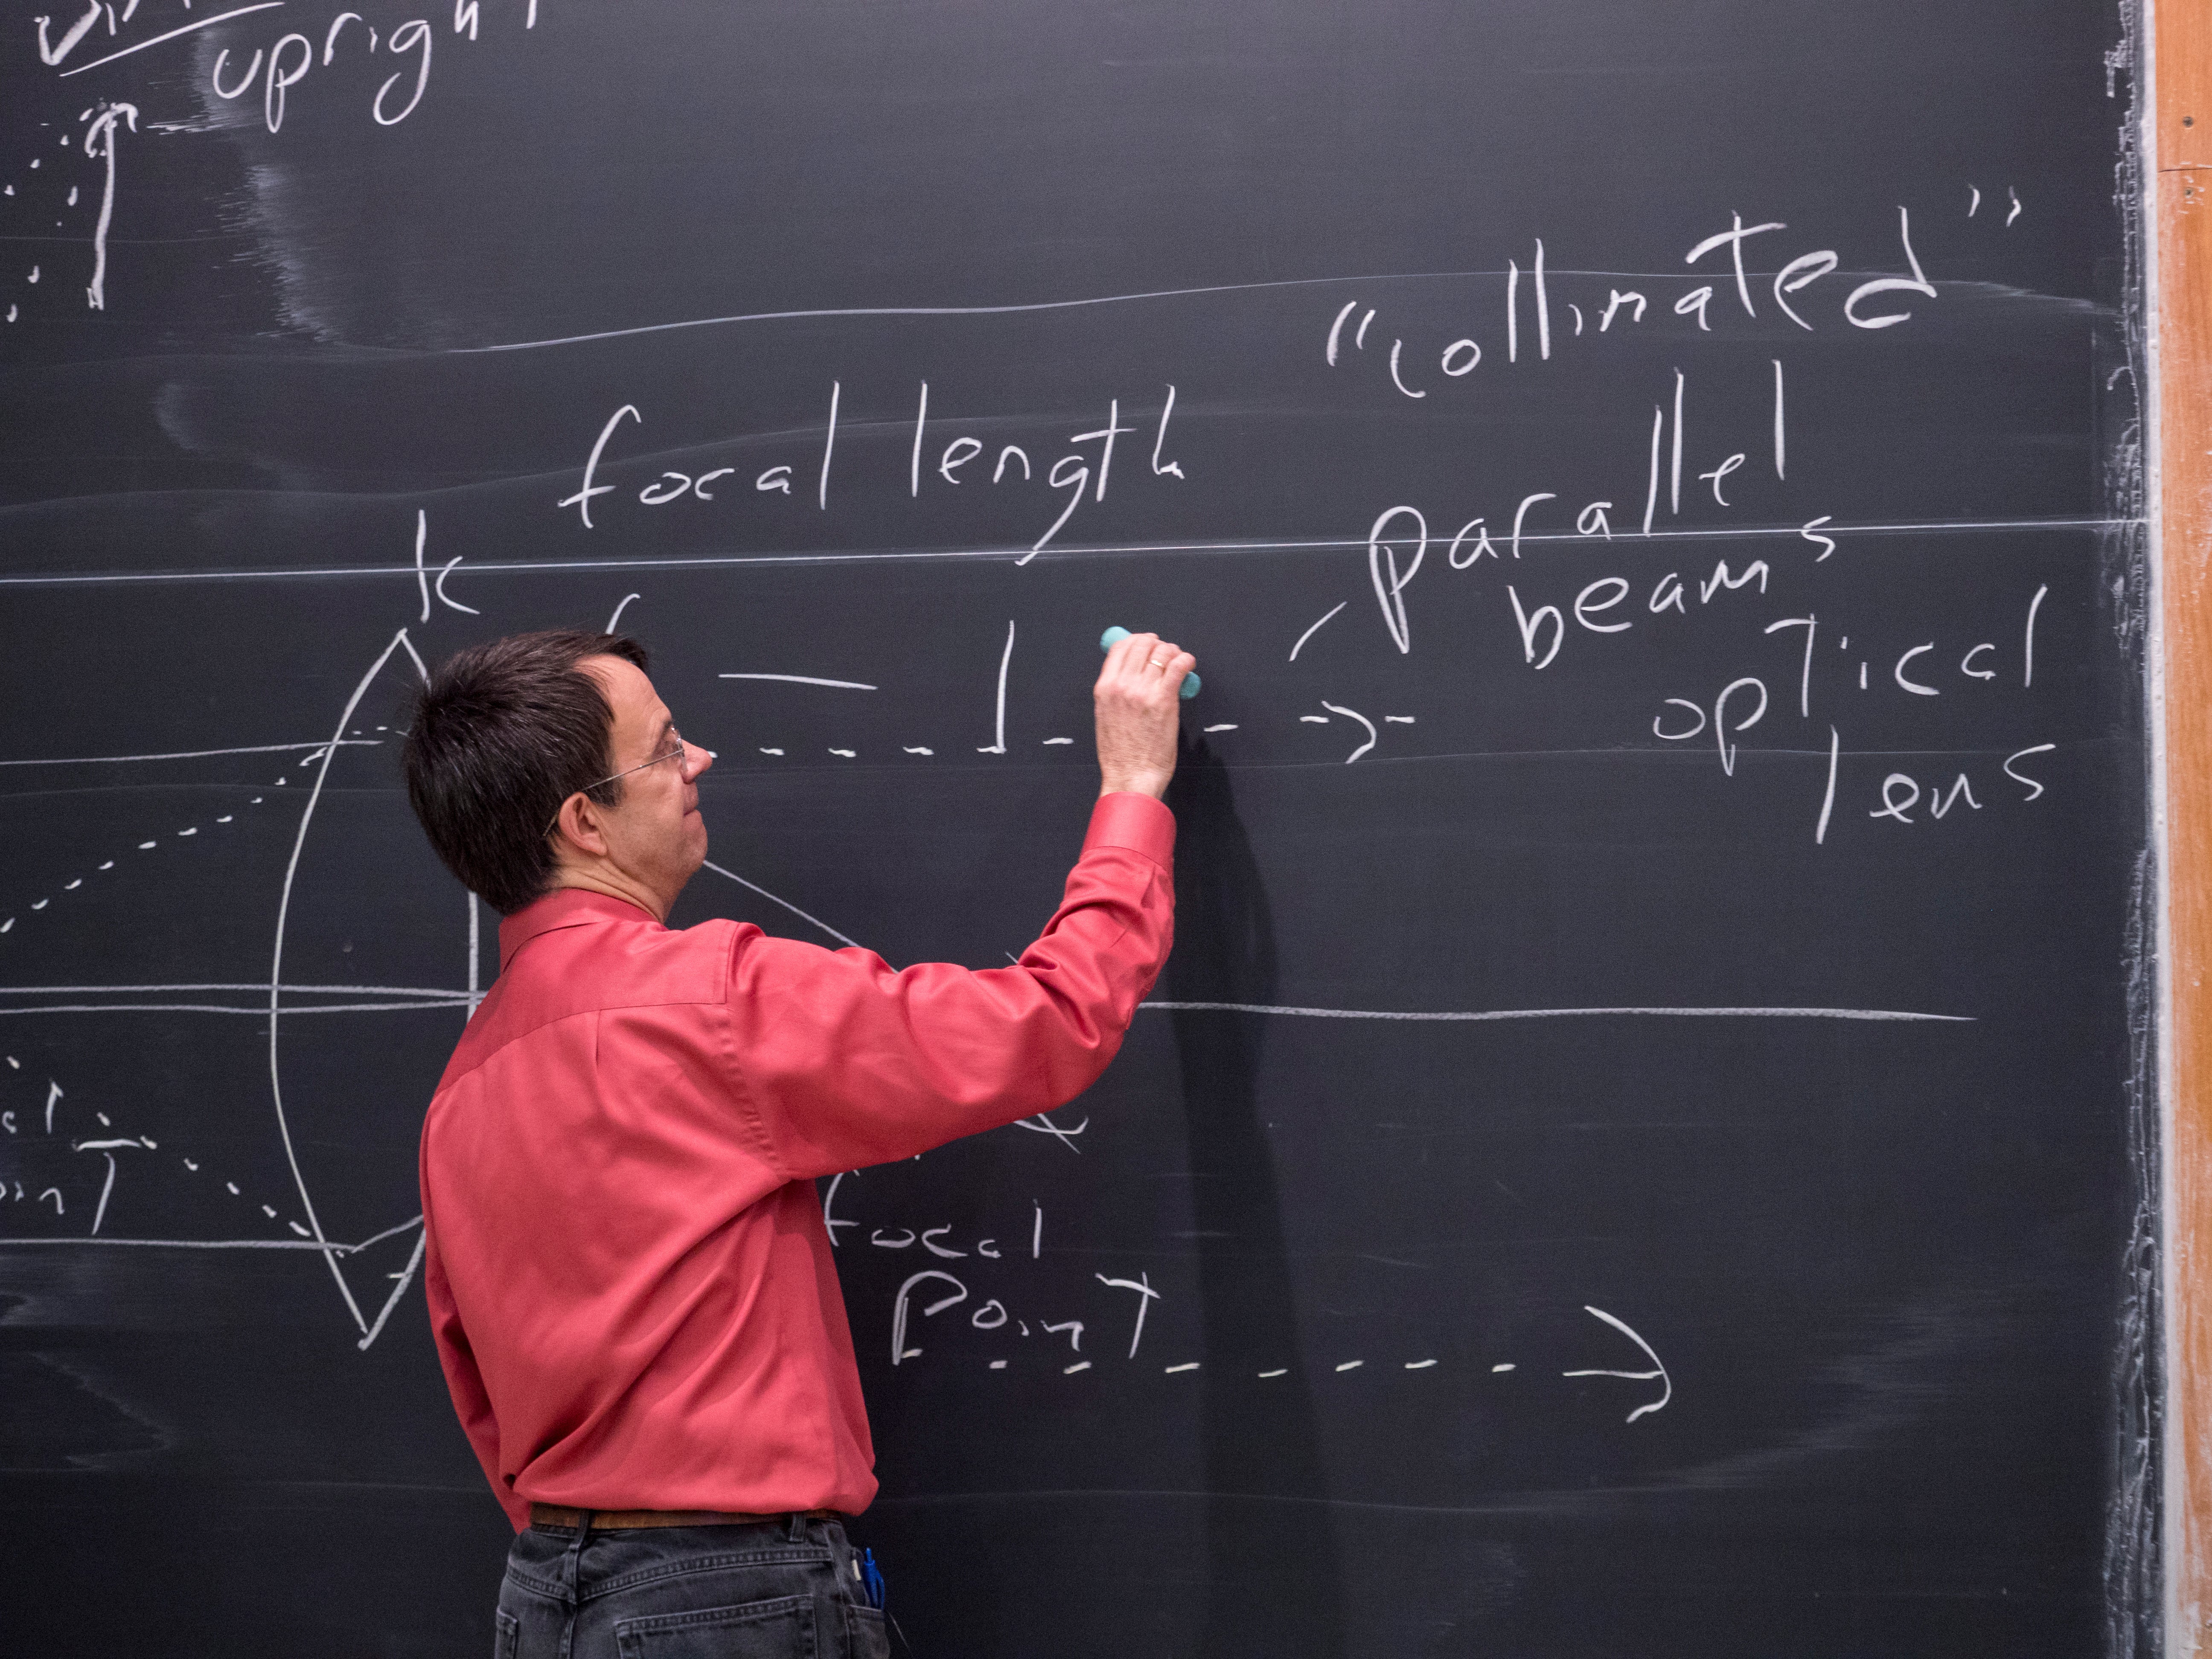 upright
"collimated"
focal length
parallel
beams
optical
lens
focal
point